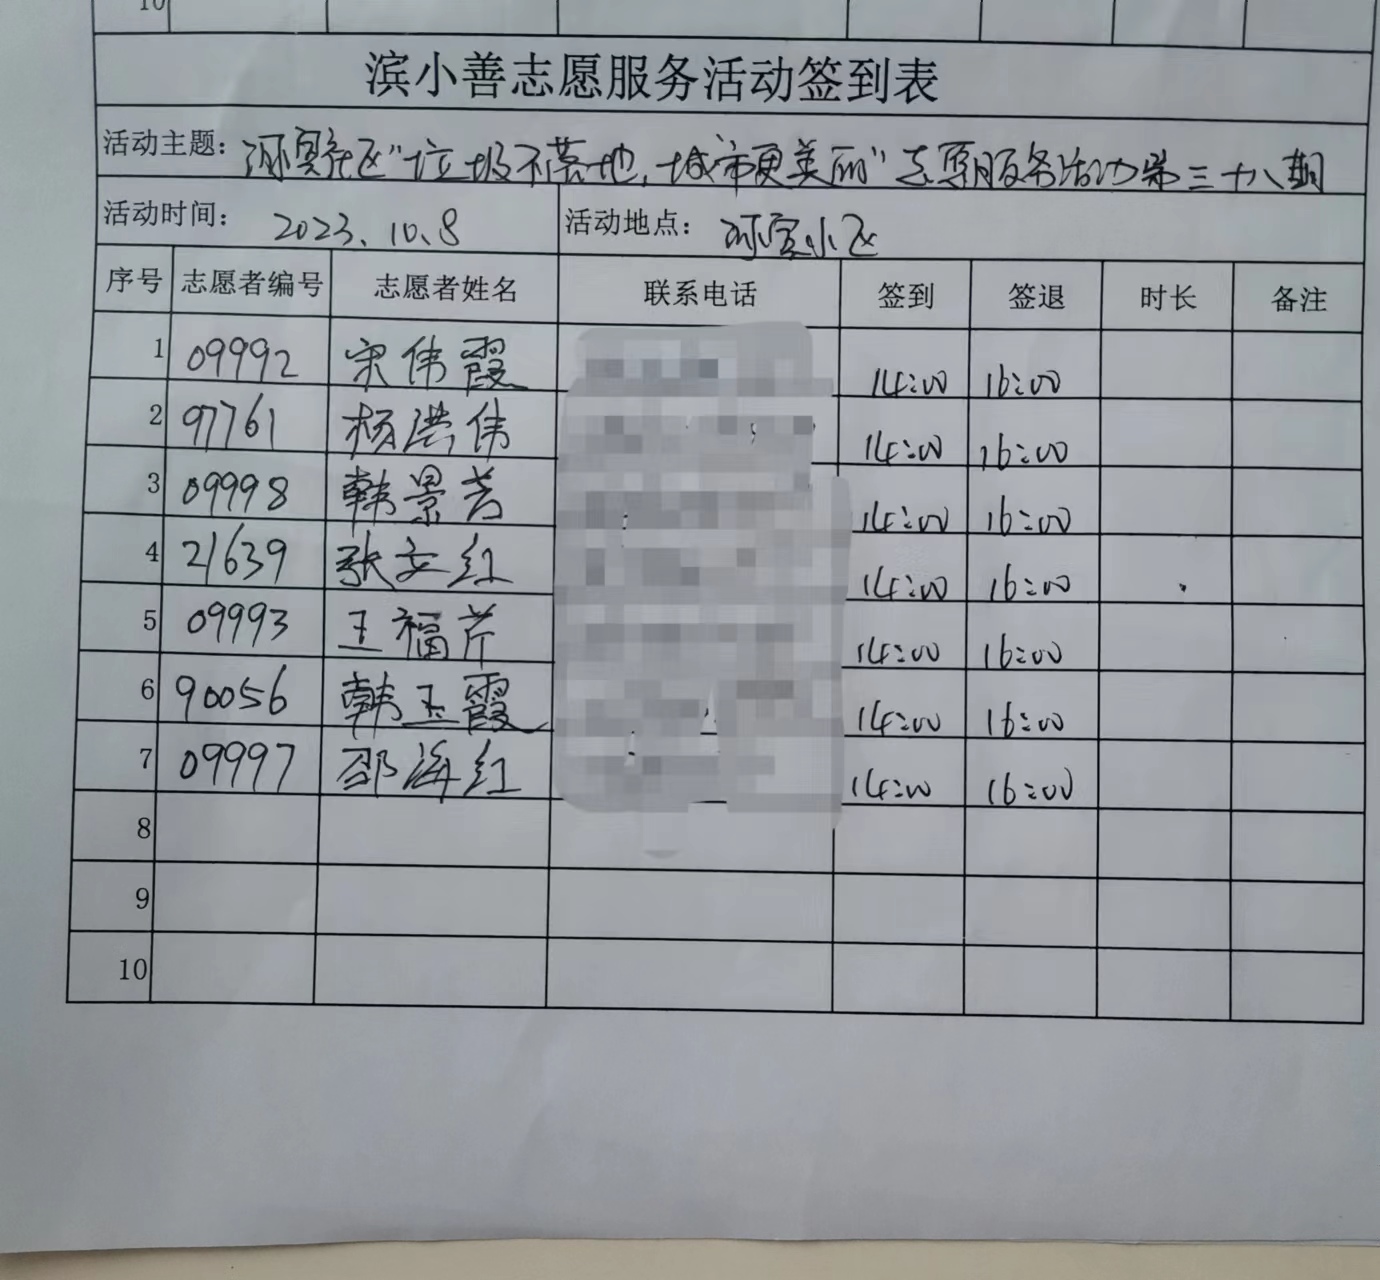 10
滨小善志愿服务活动签到表
活动主题：河滨社区"垃圾不落地，城市更美丽"志愿服务活动第三十八期
活动时间： 2023.10.8 活动地点： 小区
序号 志愿者编号 志愿者姓名 联系电话 签到 签退 时长 备注
1 09992 宋伟霞 14:00 16:00
2 97761 杨洪伟 14:00 16:00
3 09998 韩景芳 14:00 16:00
4 21639 张文红 14:00 16:00
5 09993 王福芹 14:00 16:00
6 90056 韩玉霞 14:00 16:00
7 09997 邵海红 14:00 16:00
8
9
10